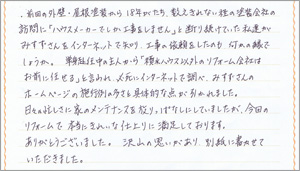 ・前回の外壁・屋根塗装から18年がたち、数えきれない程の塗装会社の
訪問に「ハウスメーカーでしか工事をしません」と断り続けていた私達が
みすずさんをインターネットで知り、工事の依頼をしたのも何かの縁で
しょうか。単身赴任中の主人から「積水ハウス以外のリフォーム会社は
お前に任せる」と言われ、必死にインターネットで調べ、みすずさんの
ホームページの施行例の多さと具体的な点が引かれました。
日々の忙しさに家のメンテナンスを放りっぱなしにしていましたが、今回の
リフォームで本当にきれいな仕上りに満足しております。
ありがとうございました。沢山の思いがあり、別紙に書かせて
いただきました。